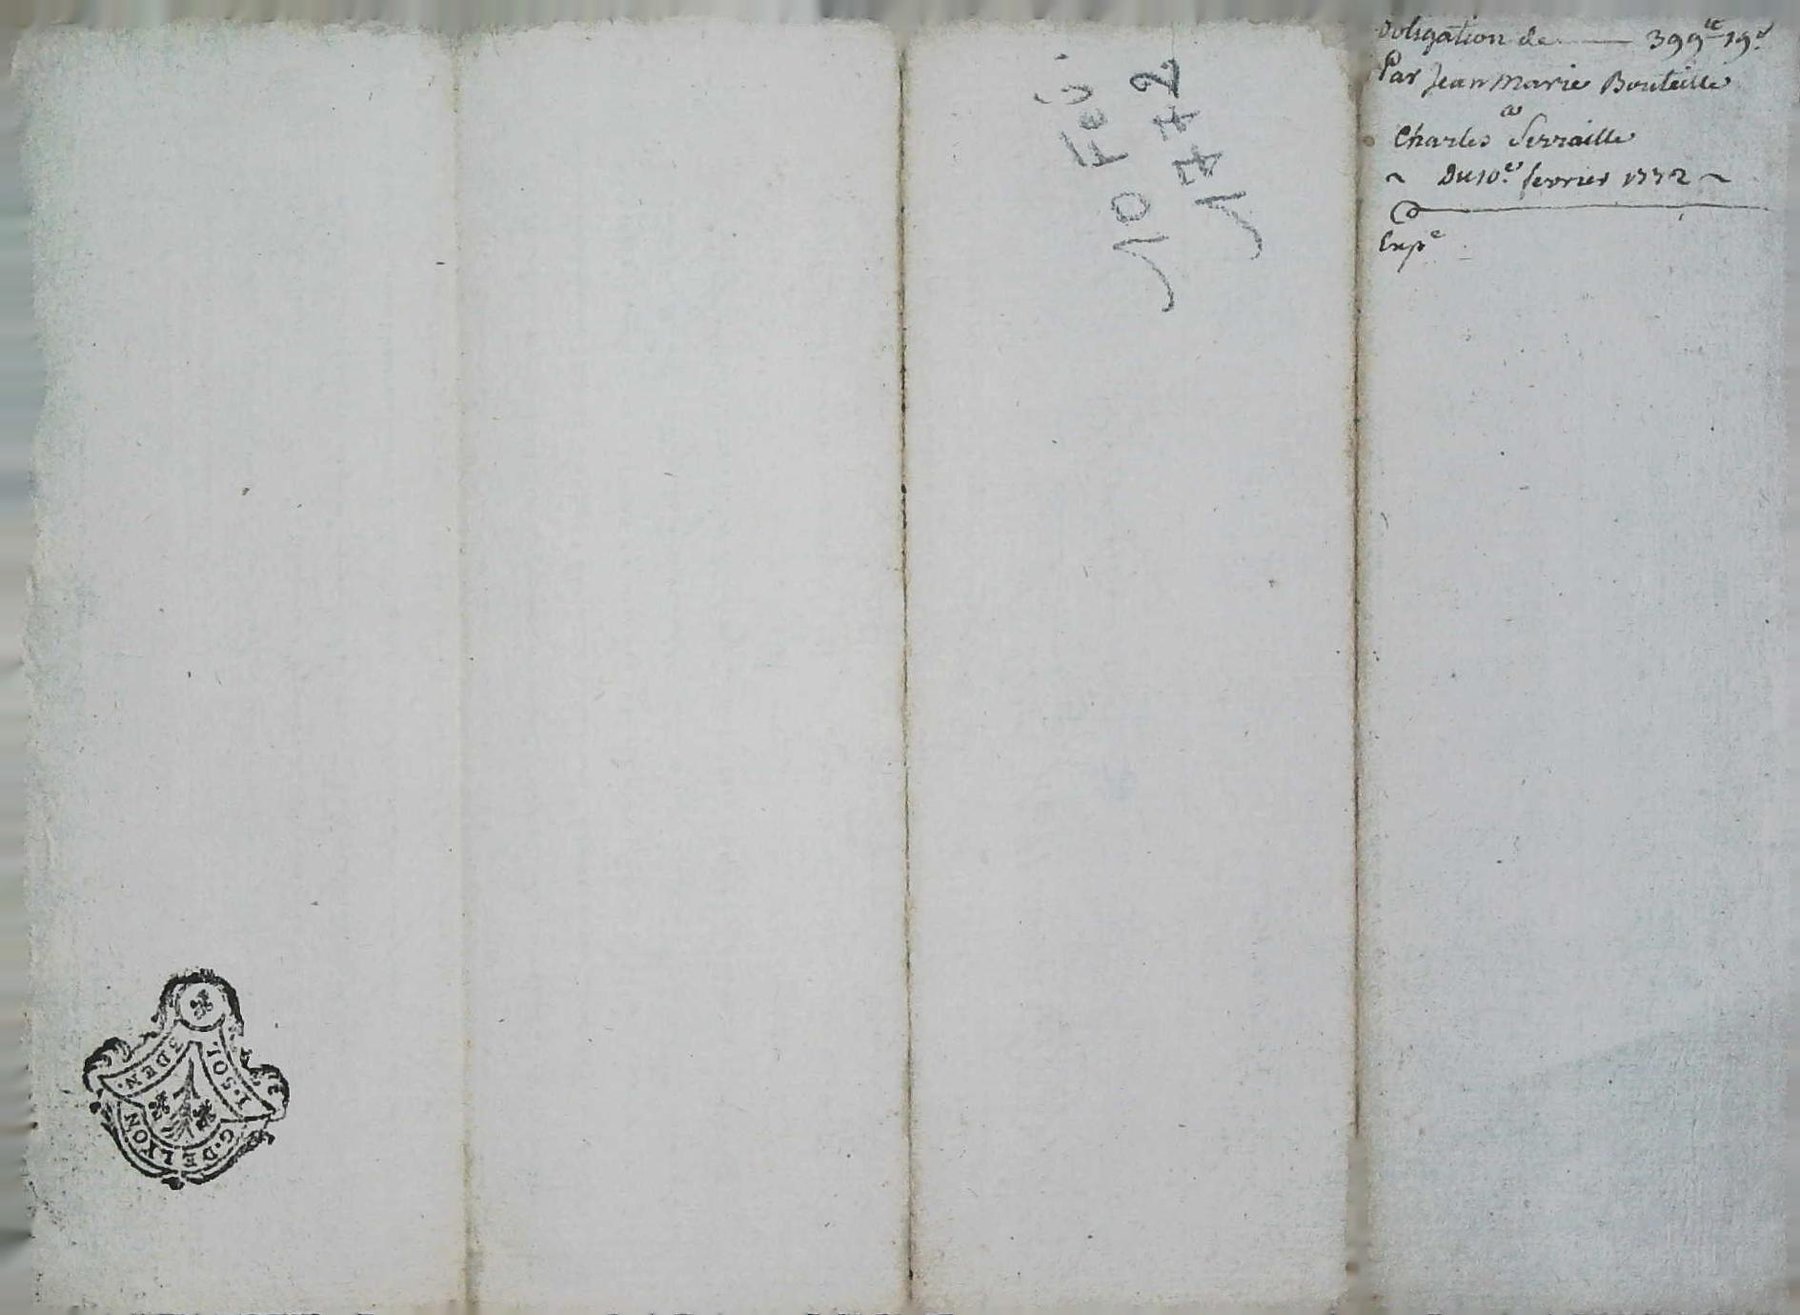 Obligation de —— 399tt 19s
Par Jean Marie Bouteille
a
Charles Serraille
~ Du 10e fevrier 1772 ~
Expe
10 Fev.
1772
1·SOL
3DEN·
G·DE LYON